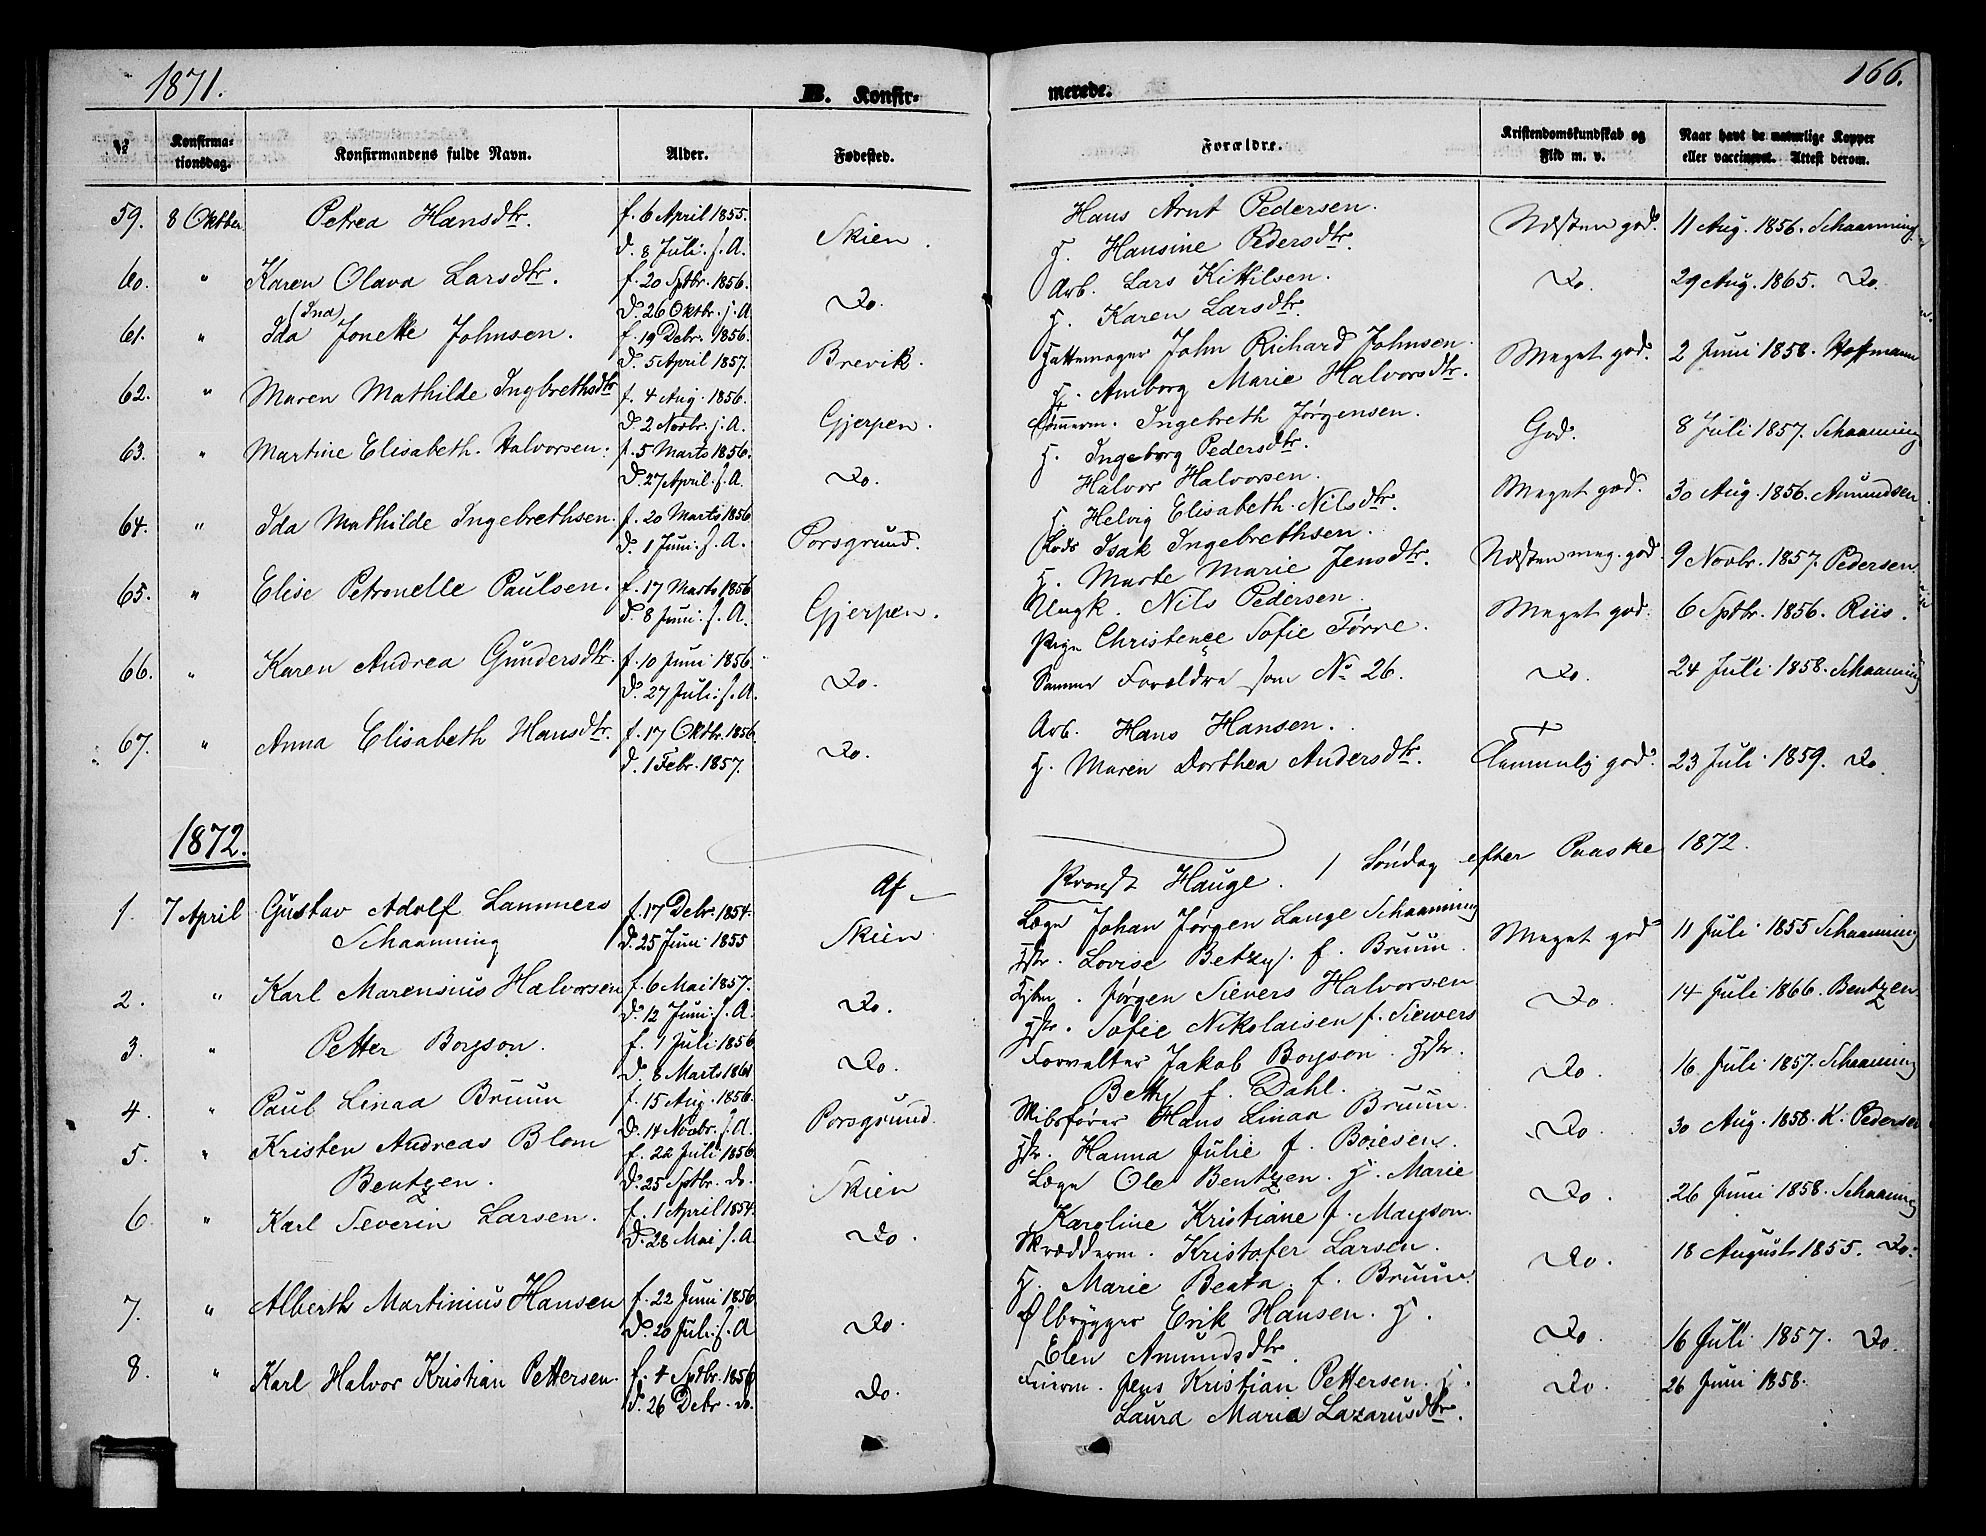 1871.
B. Konfir-
merede.
166.
№
Konfirma-
tionsdag.
Konfirmandens fulde Navn.
Alder.
Fødested.
Forældre.
Kristendomskundskab og
Flid m. v.
Naar havt de naturlige Kopper
eller vaccineret. Attest derom.
59. 8 Oktber Petrea Hansdtr. f. 6 April 1855. Hans Arnt Pedersen.
d. 8 Juli. s. A. Skien. H. Hansine Pedersdtr. Næsten god. 11 Aug. 1856. Schaanning
60. " Karen Olava Larsdtr. f. 20 Sptbr. 1856. Arb. Lars Kittilsen.
d. 26 Oktbr. s. A. Do. H. Karen Larsdtr. Do. 29 Aug. 1865. Do.
(Ina)
61. " Ida Jonette Johnsen. f. 19 Debr. 1856. Hattemager John Richard Johnsen.
d. 5 April 1857. Brevik. H. Amborg Marie Halvorsdtr. Meget god. 2 Juni 1858. Hoffmann
62. " Maren Mathilde Ingbrethsdtr f. 4 Aug. 1856. Tømmerm. Ingebreth Jørgensen.
d. 2 Novbr. s. A. Gjerpen. H. Ingeborg Pedersdtr. God. 8 Juli 1857. Schaanning
63. " Martine Elisabeth. Halvorsen. f. 5 Marts 1856. Halvor Halvorsen.
d. 27 April. s. A. Do. H. Helvig Elisabeth. Nilsdtr. Meget god. 30 Aug. 1856. Amundsen
64. " Ida Mathilde Ingebrethsen. f. 20 Marts 1856 Lods Isak Ingebrethsen.
d. 1 Juni. s. A. Porsgrund. H. Marte Marie Jensdtr. Næsten meg. god. 9 Novbr. 1857. Pedersen.
65. " Elise Petronelle Paulsen. f. 17 Marts 1856 Ungk. Nils Pedersen.
d. 8 Juni. s. A. Gjerpen. Pige Christence Sofie Tørre. Meget god. 6 Sptbr. 1856. Riis.
66. " Karen Andrea Gundersdtr. f. 10 Juni 1856.
d. 27 Juli. s. A. Do. Samme Forældre som No 26. Do. 24 Juli 1858. Schaanning
67. " Anna Elisabeth Hansdtr. f. 17 Oktbr. 1856. Arb. Hans Hansen.
d. 1 Febr. 1857. Do. H. Maren Dorthea Andersdtr. Temmelig god. 23 Juli 1859. Do.
1872.
Af Provst Hauge. 1 Søndag efter Paaske 1872.
1. 7 April Gustav Adolf Lammers f. 17 Debr. 1854. Læge Johan Jørgen Lange Schaanning
Schaanning d. 25 Juni 1855 Skien Hstr. Lovise Betzy. f. Bruun. Meget god 11 Juli 1855 Schaanning
2. " Karl Marensius Halvorsen f. 6 Mai 1857. Jørgen Sievers Halvorsen
d. 12 Juni. s. A. Do. Hstr. Sofie Nikolaisen f. Siewers Do. 14 Juli 1866. Bentzen
3. " Petter Boyson. f. 1 Juli 1856 Forvalter Jakob Boyson. Hstr.
d. 8 Marts 1861 Do. Betty f. Dahl. Do. 16 Juli 1857. Schaanning
4. " Paul Linaa Bruun f. 15 Aug. 1856. Skibsfører Hans Linaa Bruun.
d. 14 Novbr. s. A. Porsgrund. Hstr. Hanna Julie f. Boiesen. Do. 30 Aug. 1858. K. Pedersen
5. " Kristen Andreas Blom f. 22 Juli 1856. Læge Ole Bentzen. H. Marie
Bentzen. d. 25 Sptbr. do. Skien Karoline Kristiane f. Mayson. Do. 26 Juni 1858. Schaanning
6. " Karl Severin Larsen. f. 1 April 1854. Skrædderm. Kristofer Larsen.
d. 28 Mai s. A. Do. H. Marie Beata. f. Bruun. Do. 18 August 1855. Do.
7. " Alberth Martinius Hansen f. 22 Juni 1856 Ølbrygger Erik Hansen. H.
d. 20 Juli. s. A Do. Elen Amundsdtr. Do. 16 Juli 1857. Do.
8. " Karl Halvor Kristian Pettersen. f. 4 Sptbr. 1856 Jens Kristian Pettersen. H.
d. 26 Debr. do. Do. Laura Maria Lazarusdtr. Do. 26 Juni 1858.